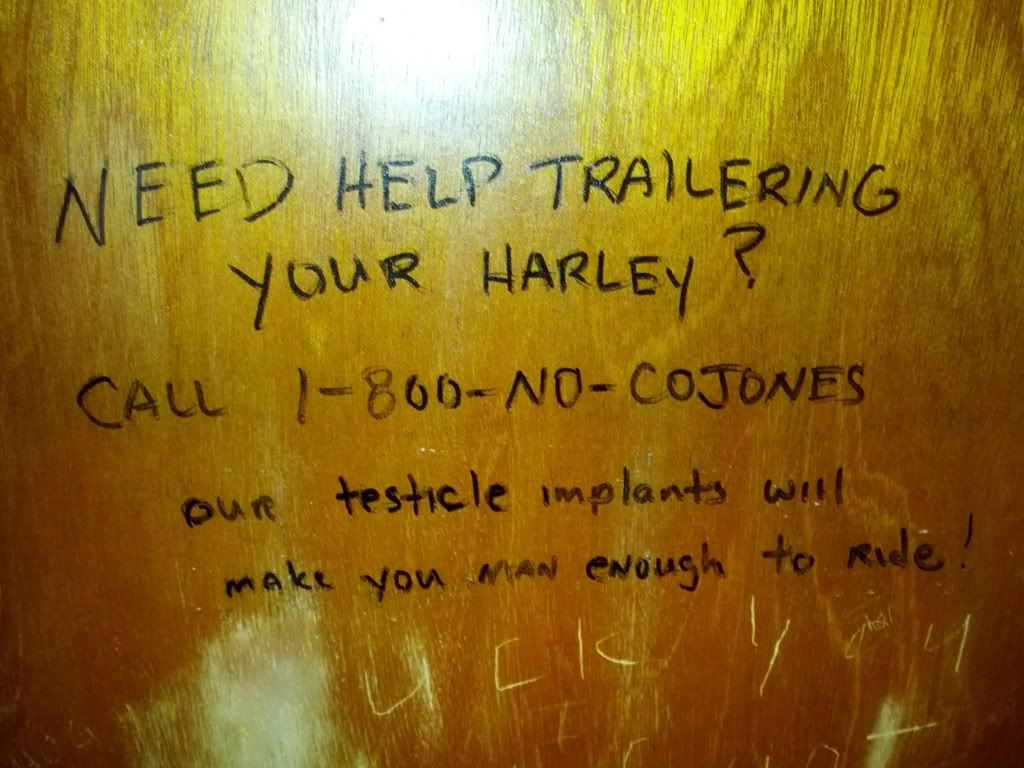 NEED HELP TRAILERING
YOUR HARLEY?
CALL 1-800-NO-COJONES
our testicle implants will
make you MAN enough to Ride!